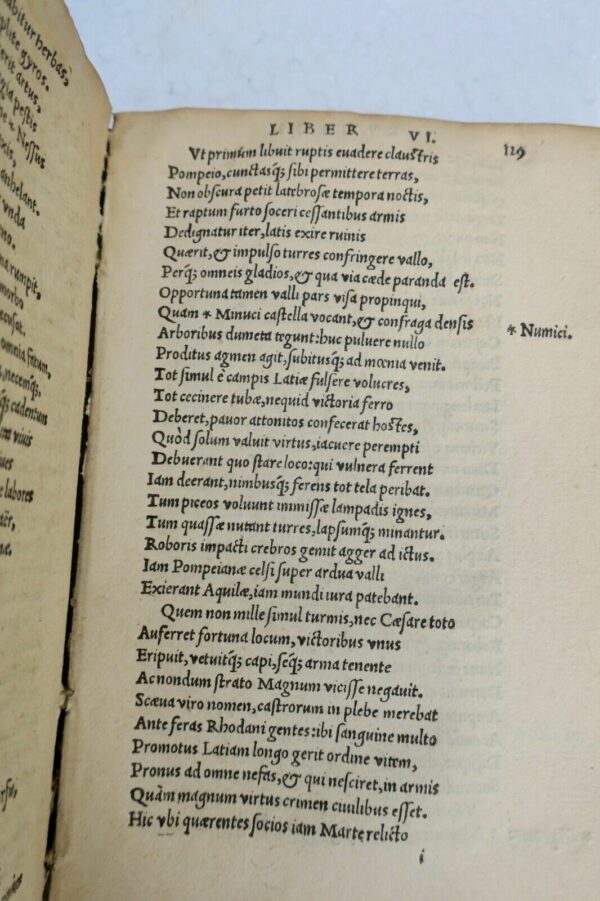 abitur herbas,
plite gyros.
erit artus,
gia pestis
e * Nessus
xis,
anhelant.
vnda
no.
ha rumpit,
morbo
cusat.
omnia fatum,
, necemq́;
q́; cadentum
vivis
ues
e labores
.
na.
LIBER VI. 129
Vt primùm libuit ruptis euadere claustris
Pompeio, cunctasq́; sibi permittere terras,
Non obscura petit latebrosæ tempora noctis,
Et raptum furto soceri cessantibus armis
Dedignatur iter, latis exire ruinis
Quærit, & impulso turres confringere vallo,
Perq́; omneis gladios, & qua via cæde paranda est.
Opportuna tamen valli pars visa propinqui,
Quam * Minuci castella vocant, & confraga densis
* Numici.
Arboribus dumeta tegunt: huc puluere nullo
Proditus agmen agit, subitusq́; ad mœnia venit.
Tot simul è campis Latiæ fulsere volucres,
Tot cecinere tubæ, nequid victoria ferro
Deberet, pauor attonitos confecerat hostes,
Quòd solum valuit virtus, iacuere perempti
Debuerant quo stare loco: qui vulnera ferrent
Iam deerant, nimbusq́; ferens tot tela peribat.
Tum piceos voluunt immissæ lampadis ignes,
Tum quassæ nutant turres, lapsumq́; minantur.
Roboris impacti crebros gemit agger ad ictus.
Iam Pompeianæ celsi super ardua valli
Exierant Aquilæ, iam mundi iura patebant.
Quem non mille simul turmis, nec Cæsare toto
Auferret fortuna locum, victoribus vnus
Eripuit, vetuitq́; capi, seq́; arma tenente
Ac nondum strato Magnum vicisse negauit.
Scæua viro nomen, castrorum in plebe merebat
Ante feras Rhodani gentes: ibi sanguine multo
Promotus Latiam longo gerit ordine vitem,
Pronus ad omne nefas, & qui nesciret, in armis
Quàm magnum virtus crimen ciuilibus esset.
Hic vbi quærentes socios iam Marte relicto
i